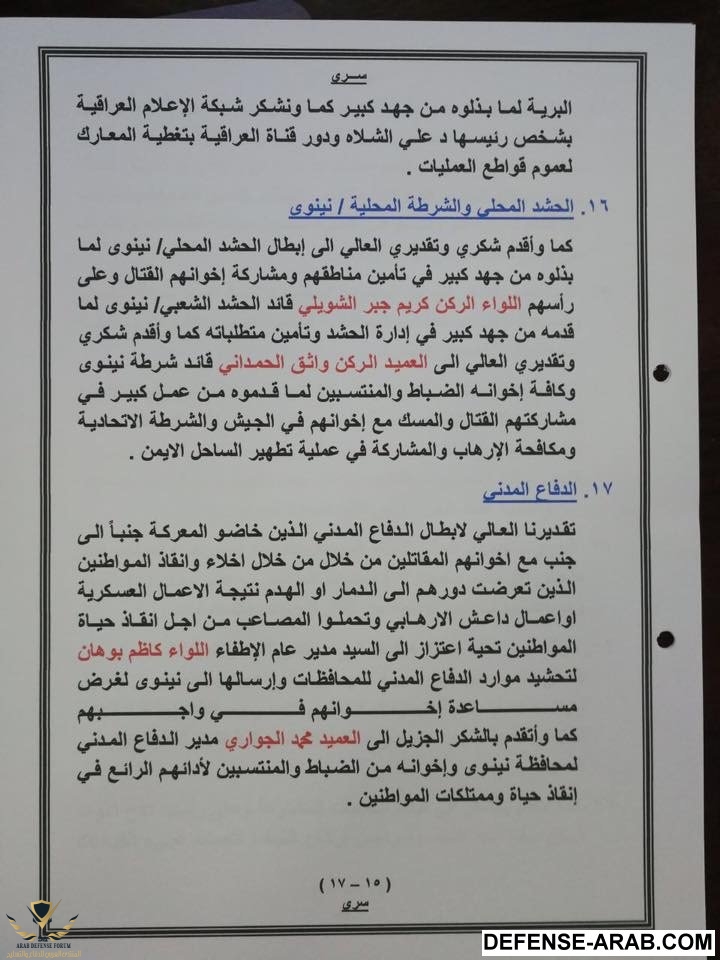 سري
البرية لما بذلوه من جهد كبير كما ونشكر شبكة الإعلام العراقية
بشخص رئيسها د علي الشلاه ودور قناة العراقية بتغطية المعارك
لعموم قواطع العمليات .
١٦. الحشد المحلي والشرطة المحلية / نينوى
كما وأقدم شكري وتقديري العالي الى إبطال الحشد المحلي/ نينوى لما
بذلوه من جهد كبير في تأمين مناطقهم ومشاركة إخوانهم القتال وعلى
رأسهم اللواء الركن كريم جبر الشويلي قائد الحشد الشعبي/ نينوى لما
قدمه من جهد كبير في إدارة الحشد وتأمين متطلباته كما وأقدم شكري
وتقديري العالي الى العميد الركن واثق الحمداني قائد شرطة نينوى
وكافة إخوانه الضباط والمنتسبين لما قدموه من عمل كبير في
مشاركتهم القتال والمسك مع إخوانهم في الجيش والشرطة الاتحادية
ومكافحة الإرهاب والمشاركة في عملية تطهير الساحل الايمن .
١٧. الدفاع المدني
تقديرنا العالي لابطال الدفاع المدني الذين خاضو المعركة جنباً الى
جنب مع اخوانهم المقاتلين من خلال من خلال اخلاء وانقاذ المواطنين
الذين تعرضت دورهم الى الدمار او الهدم نتيجة الاعمال العسكرية
اواعمال داعش الارهابي وتحملوا المصاعب من اجل انقاذ حياة
المواطنين تحية اعتزاز الى السيد مدير عام الإطفاء اللواء كاظم بوهان
لتحشيد موارد الدفاع المدني للمحافظات وإرسالها الى نينوى لغرض
مساعدة إخوانهم في واجبهم
كما وأتقدم بالشكر الجزيل الى العميد محمد الجواري مدير الدفاع المدني
لمحافظة نينوى وإخوانه من الضباط والمنتسبين لأدائهم الرائع في
إنقاذ حياة وممتلكات المواطنين .
( ١٥ – ١٧ )
سري
ARAB DEFENSE FORUM
DEFENSE-ARAB.COM